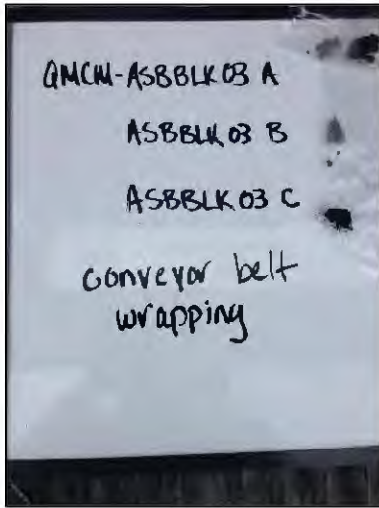 QMCM-ASBBLK03 A
ASBBLK03 B
ASBBLK03 C
conveyor belt
wrapping